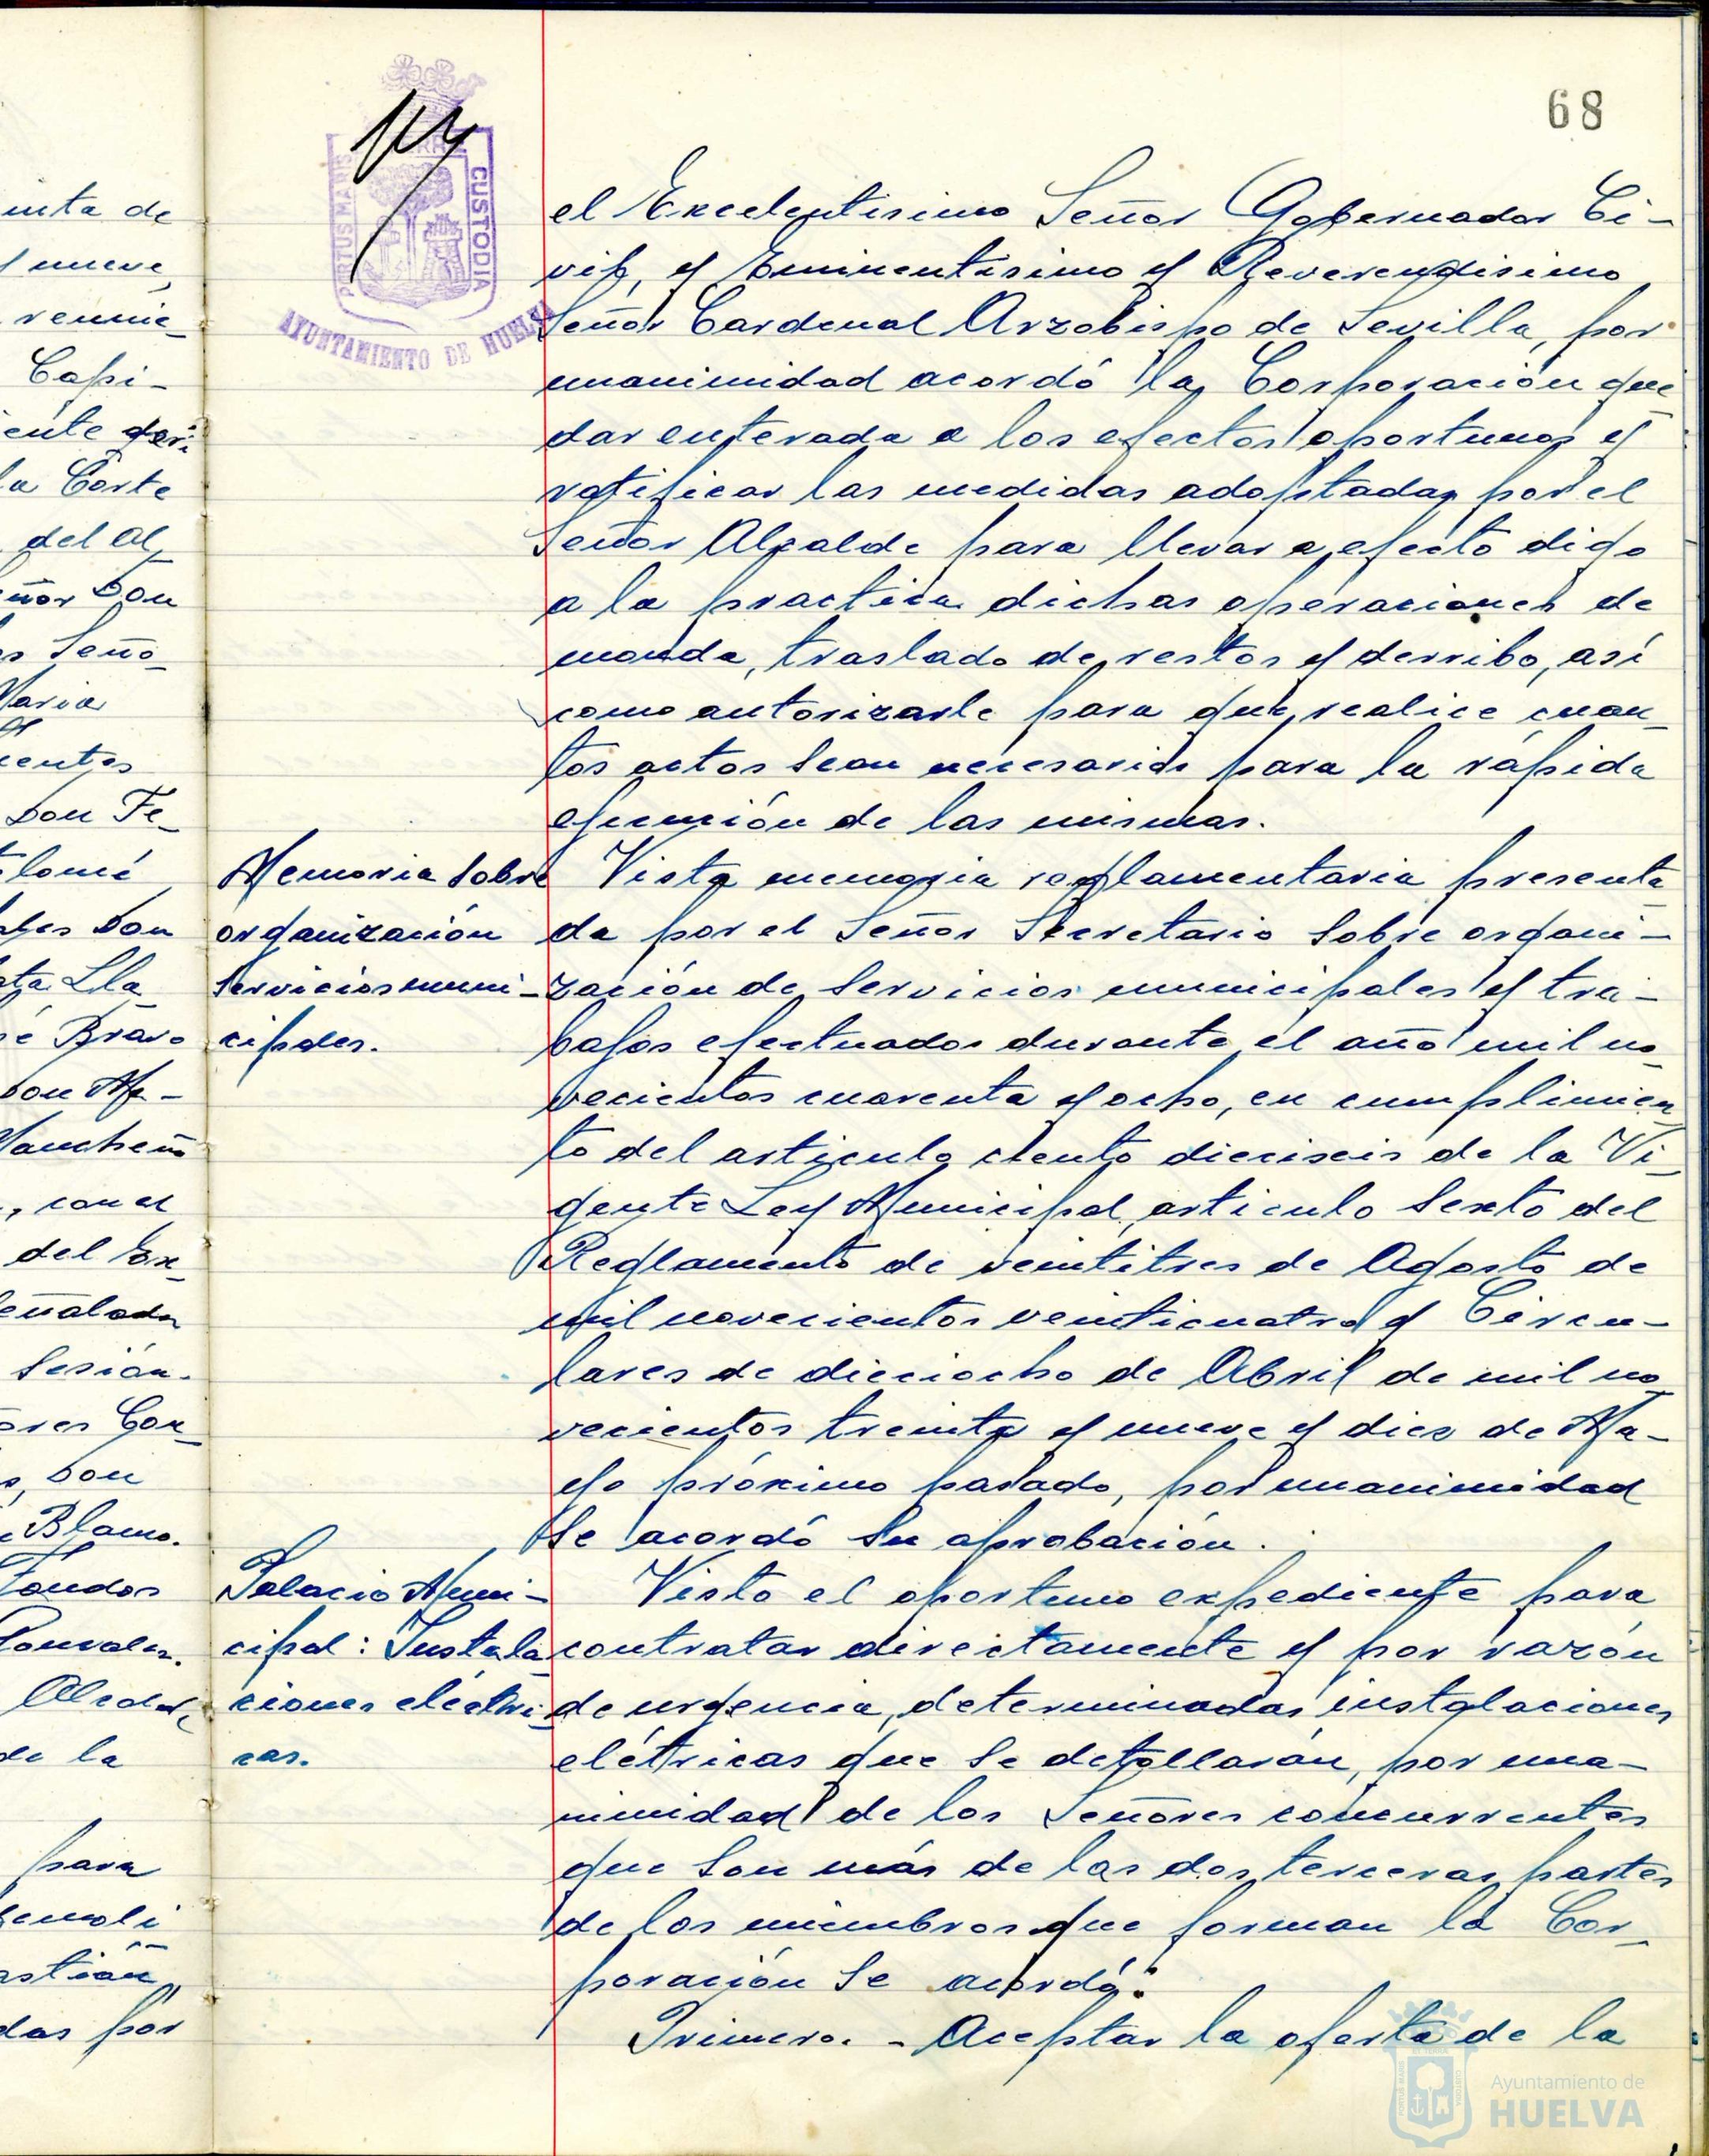 68
PORTUS MARIS
CUSTODIA
AYUNTAMIENTO DE HUELVA
el Excelentisimo Señor Gobernador Ci-
vil, y Eminentisimo y Reverendisimo
Señor Cardenal Arzobispo de Sevilla, por
unanimidad acordó la Corporación que
dar enterada a los efectos oportunos y
ratificar las medidas adoptadas por el
Señor Alcalde para llevar a efecto digo
a la practica dichas operaciones de
monda, traslado de restos y derribo, así
como autorizarle para que realice cuan-
tos actos sean necesarios para la rápida
ejecución de las mismas.
Memoria sobre
organización
servicios muni-
cipales.
Vista memoria reglamentaria presenta
da por el Señor Secretario sobre organi-
zación de servicios municipales y tra-
bajos efectuados durante el año mil no-
vecientos cuarenta y ocho, en cumplimien
to del articulo ciento dieciseis de la Vi-
gente Ley Municipal, articulo sexto del
Reglamento de veintitres de Agosto de
mil novecientos veinticuatro y Circu-
lares de dieciocho de Abril de mil no-
vecientos treinta y nueve y diez de Ma-
yo próximo pasado, por unanimidad
se acordó su aprobación.
Palacio Muni-
cipal: Instala
ciones eléctri-
cas.
Visto el oportuno expediente para
contratar directamente y por razón
de urgencia, determinadas instalaciones
elétricas que se detallarán, por una-
nimidad de los Señores concurrentes
que son más de las dos terceras partes
de los miembros que forman la Cor-
poración se acordó:
Primero. - Aceptar la oferta de la
inta de
y nueve,
reunie-
Capi-
la Corte
del Al
eñor Don
s Seño-
Maria
entes
Don Fe-
tolomé
les Don
ata Lla
é Bravo
Don Ma-
Mancheño
, con el
del Ex-
señalada
sesión.
ores Con-
s, Don
Blanco.
Fondos
Alcal-
de la
para
demoli
astián,
das por
Ayuntamiento de
HUELVA